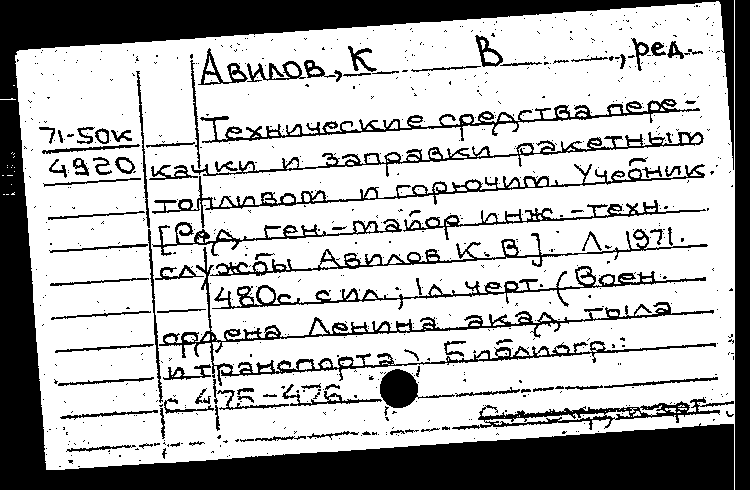 Авилов, К В , ред.
71-50к
4920
Технические средства пере-
качки и заправки ракетным
топливом и горючим. Учебник.
[Ред. ген.-майор инж.-техн.
службы Авилов К. В]. Л., 1971.
480с. с ил.; 1л. черт. (Воен.
ордена Ленина акад. тыла
и транспорта). Библиогр.:
с 475-476.